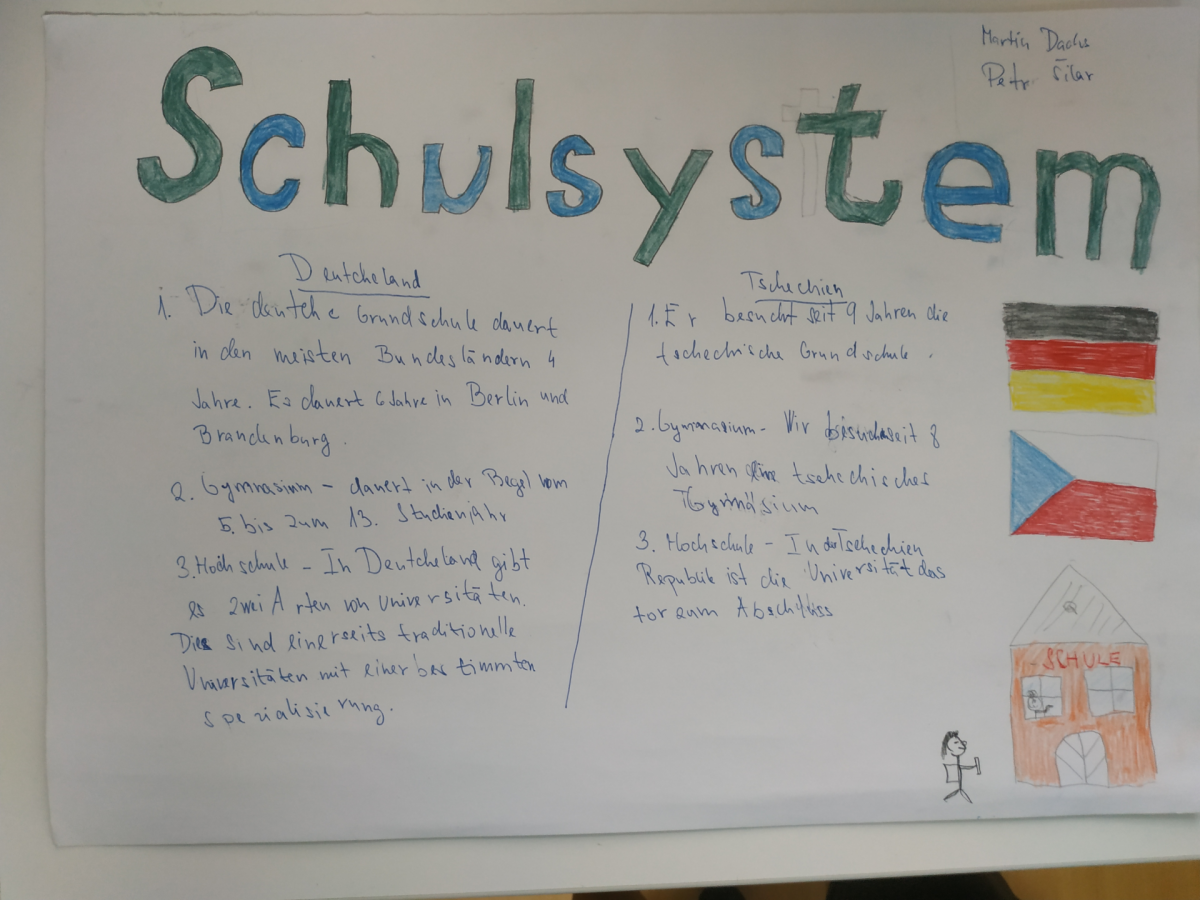 Martin Dachs
Petr Šilar
Schulsystem
Deutcheland
1. Die deutche Grundschule dauert
in den meisten Bundesländern 4
Jahre. Es dauert 6 Jahre in Berlin und
Brandenburg.
2. Gymnasium - dauert in der Regel vom
5. bis zum 13. Studienjahr
3. Hochschule - In Deutcheland gibt
es zwei Arten von Universitäten.
Dies sind einerseits traditionelle
Universitäten mit einer bestimmten
spezialisierung.
Tschechien
1. Er besucht seit 9 Jahren die
tschechische Grundschule.
2. Gymnasium - Wir seit 8
Jahren eine tschechisches
Gymnásium
3. Hochschule - In Tschechien
Republik ist die Universität das
tor zum Abschluss
SCHULE